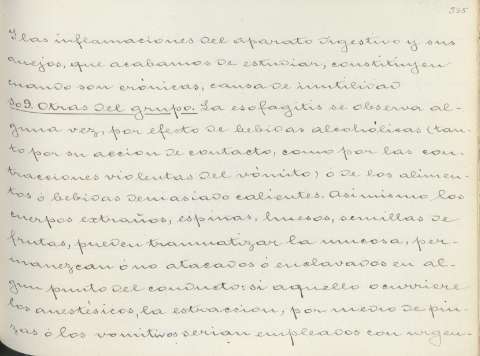 335
Y las inflamaciones del aparato digestivo y sus
anejos, que acabamos de estudiar, constituyen
cuando son crónicas, causa de inutilidad
Otras del grupo. La esofagitis se observa al-
guna vez, por efecto de bebidas alcohólicas (tan-
to por su accion de contacto, como por las con-
tracciones violentas del vómito) o de los alimen-
tos ó bebidas demasiado calientes. Asi mismo, los
cuerpos extraños, espinas, huesos, semillas de
frutas, pueden traumatizar la mucosa, per-
manezcan ó no atacados ó enclavados en al-
gun punto del conducto: si aquello ocurriere
los anestésicos, la estraccion, por medio de pin-
zas ó los vomitivos serian empleados con urgen-